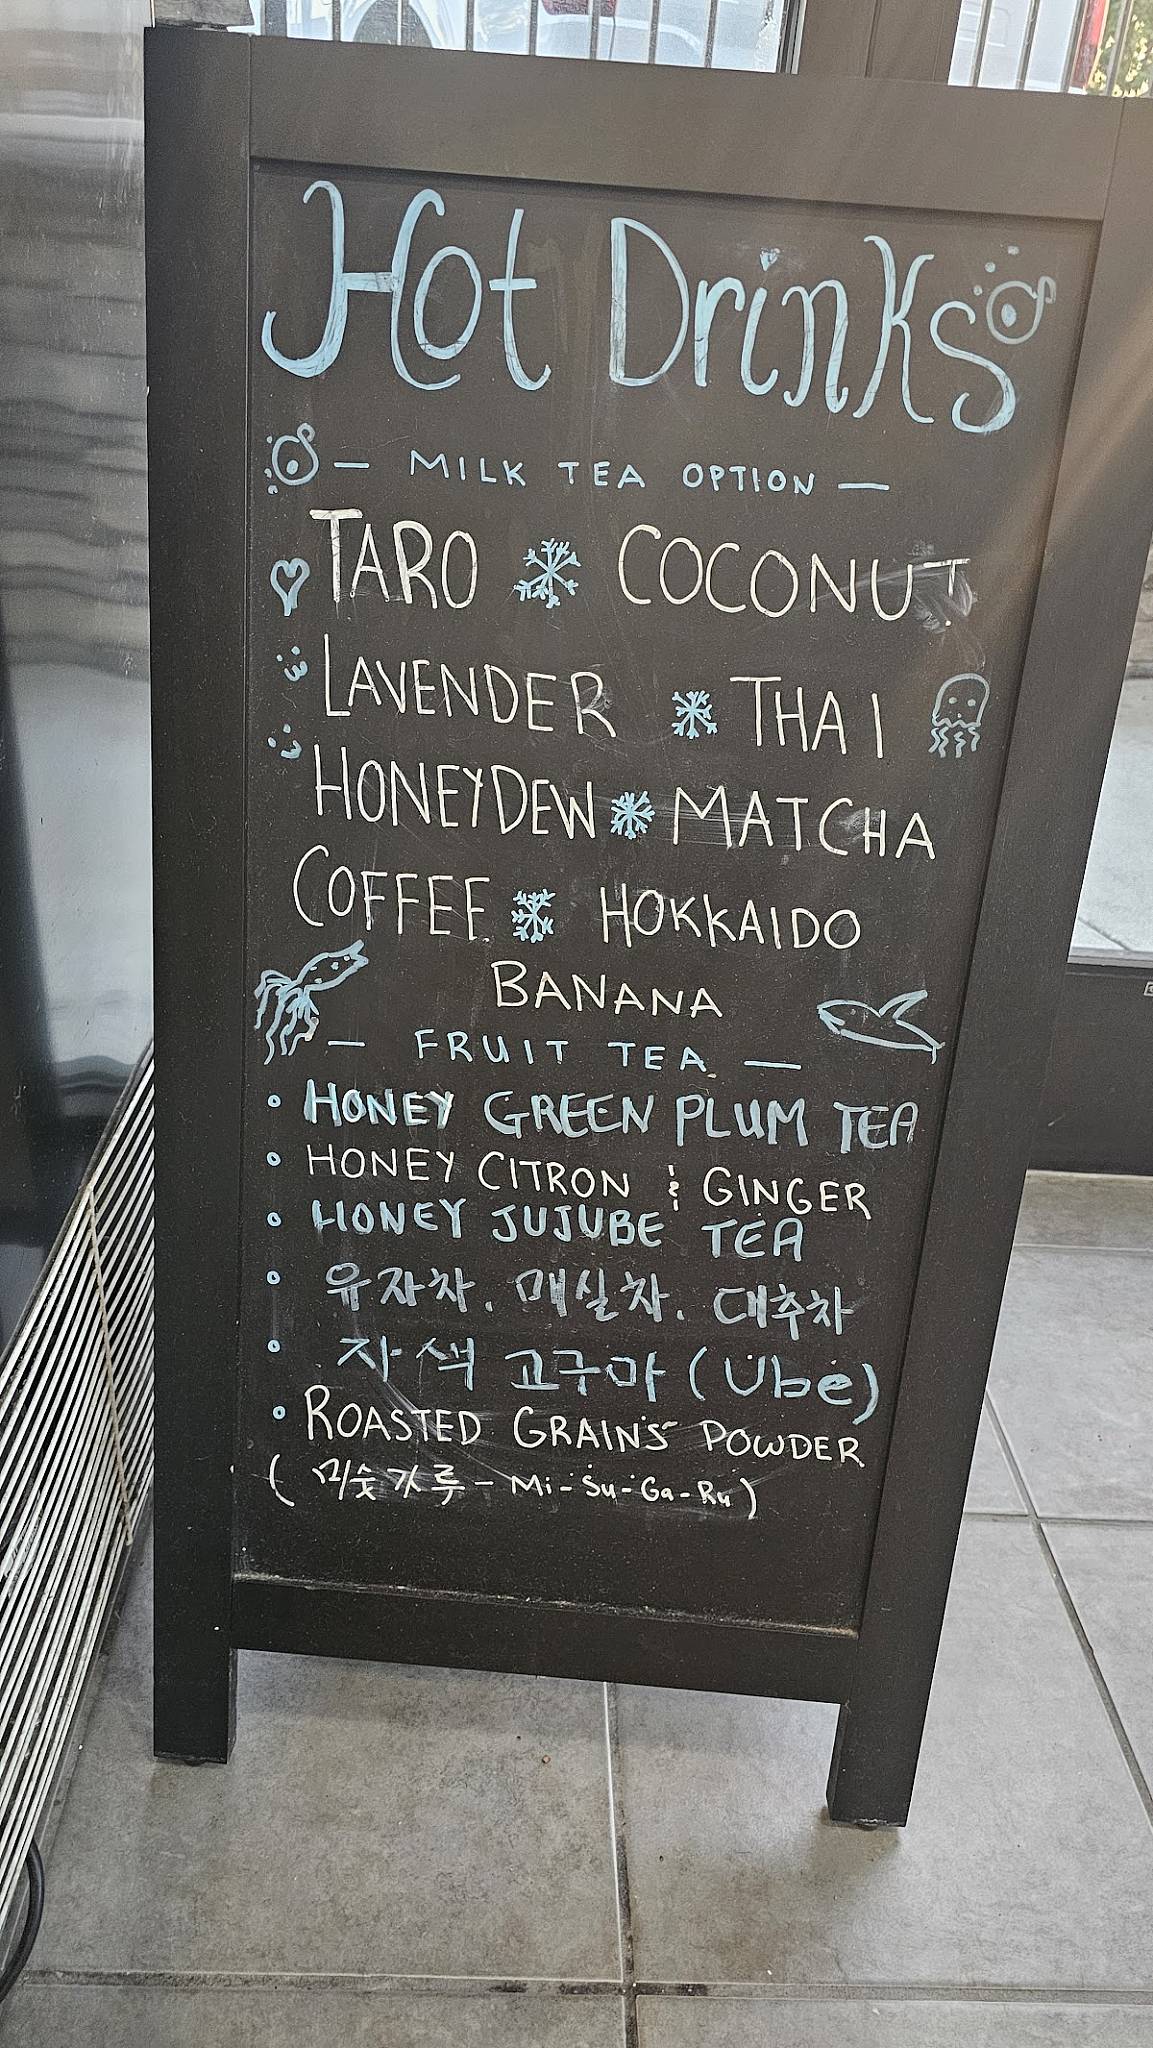 Hot Drinks
— MILK TEA OPTION —
TARO COCONUT
LAVENDER THAI
HONEYDEW MATCHA
COFFEE HOKKAIDO
BANANA
— FRUIT TEA —
• HONEY GREEN PLUM TEA
• HONEY CITRON & GINGER
• HONEY JUJUBE TEA
• 유자차. 매실차. 대추차
• 자색 고구마 (Ube)
• ROASTED GRAINS POWDER
(미숫가루 - Mi-Su-Ga-Ru)